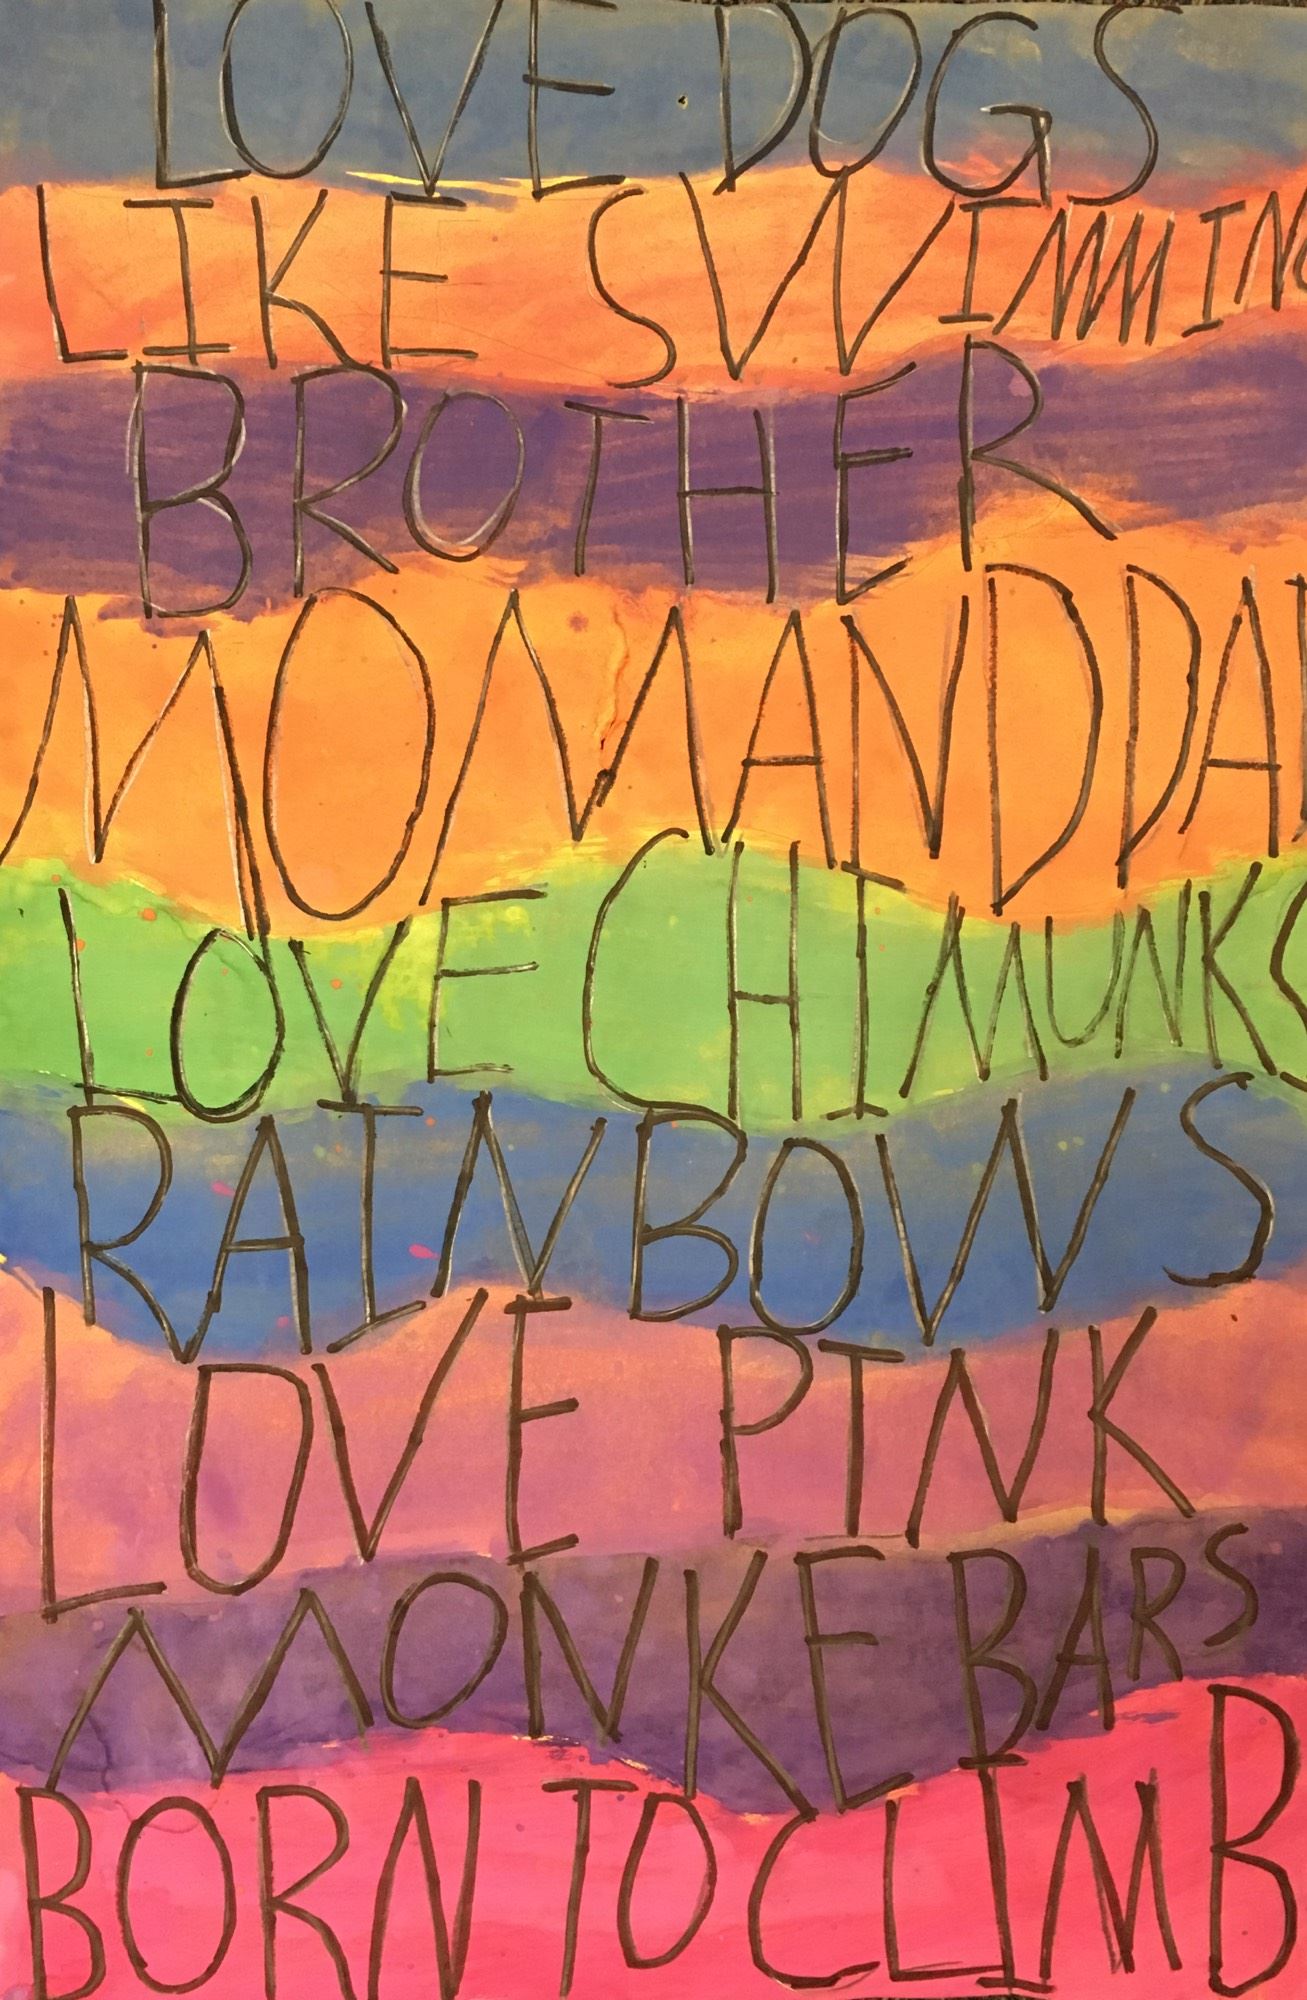 LOVE DOGS
LIKE SWIMMING
BROTHER
MOM AND DAD
LOVE CHIMUNKS
RAINBOWS
LOVE PINK
MONKE BARS
BORN TO CLIMB